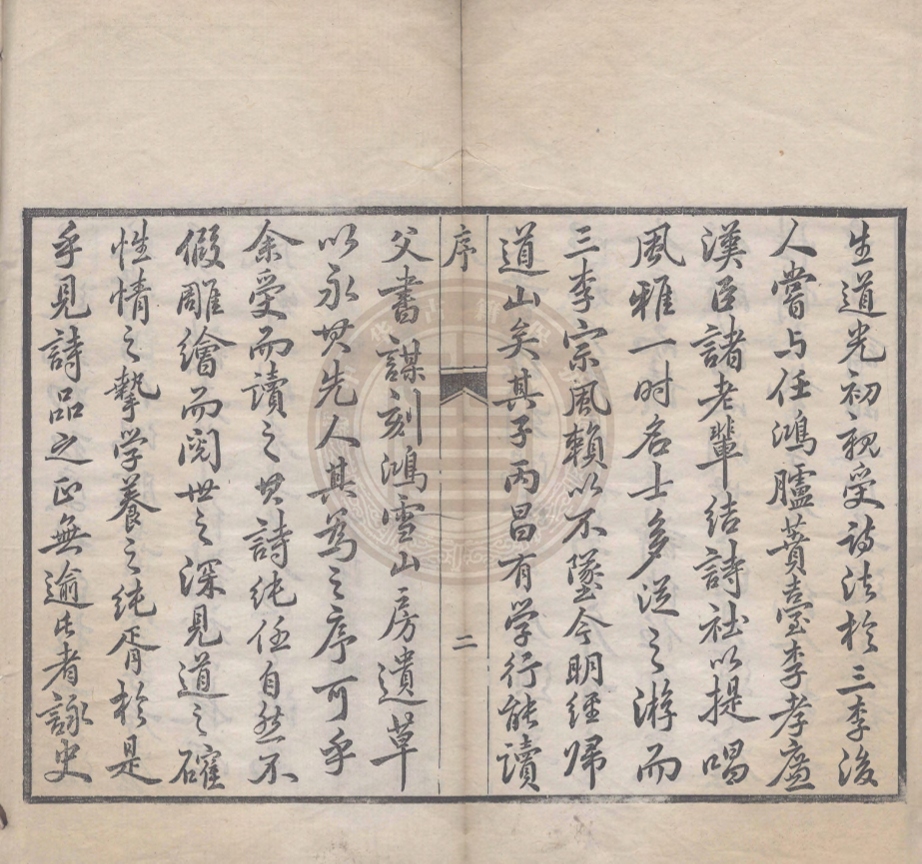 生道光初親受詩法於三李後
人嘗与任鴻臚蕡臺李孝廉
漢臣諸老輩結詩社以提唱
風雅一时名士多従之游而
三李宗風賴以不墜今明經帰
道山矣其子丙昌有学行能讀
序
二
父書謀刻鴻雪山房遺草
以永其先人其為之序可乎
余受而讀之其詩純任自然不
假雕繪而閱世之深見道之確
性情之摯学養之純胥於是
乎見詩品之正無逾此者詠史